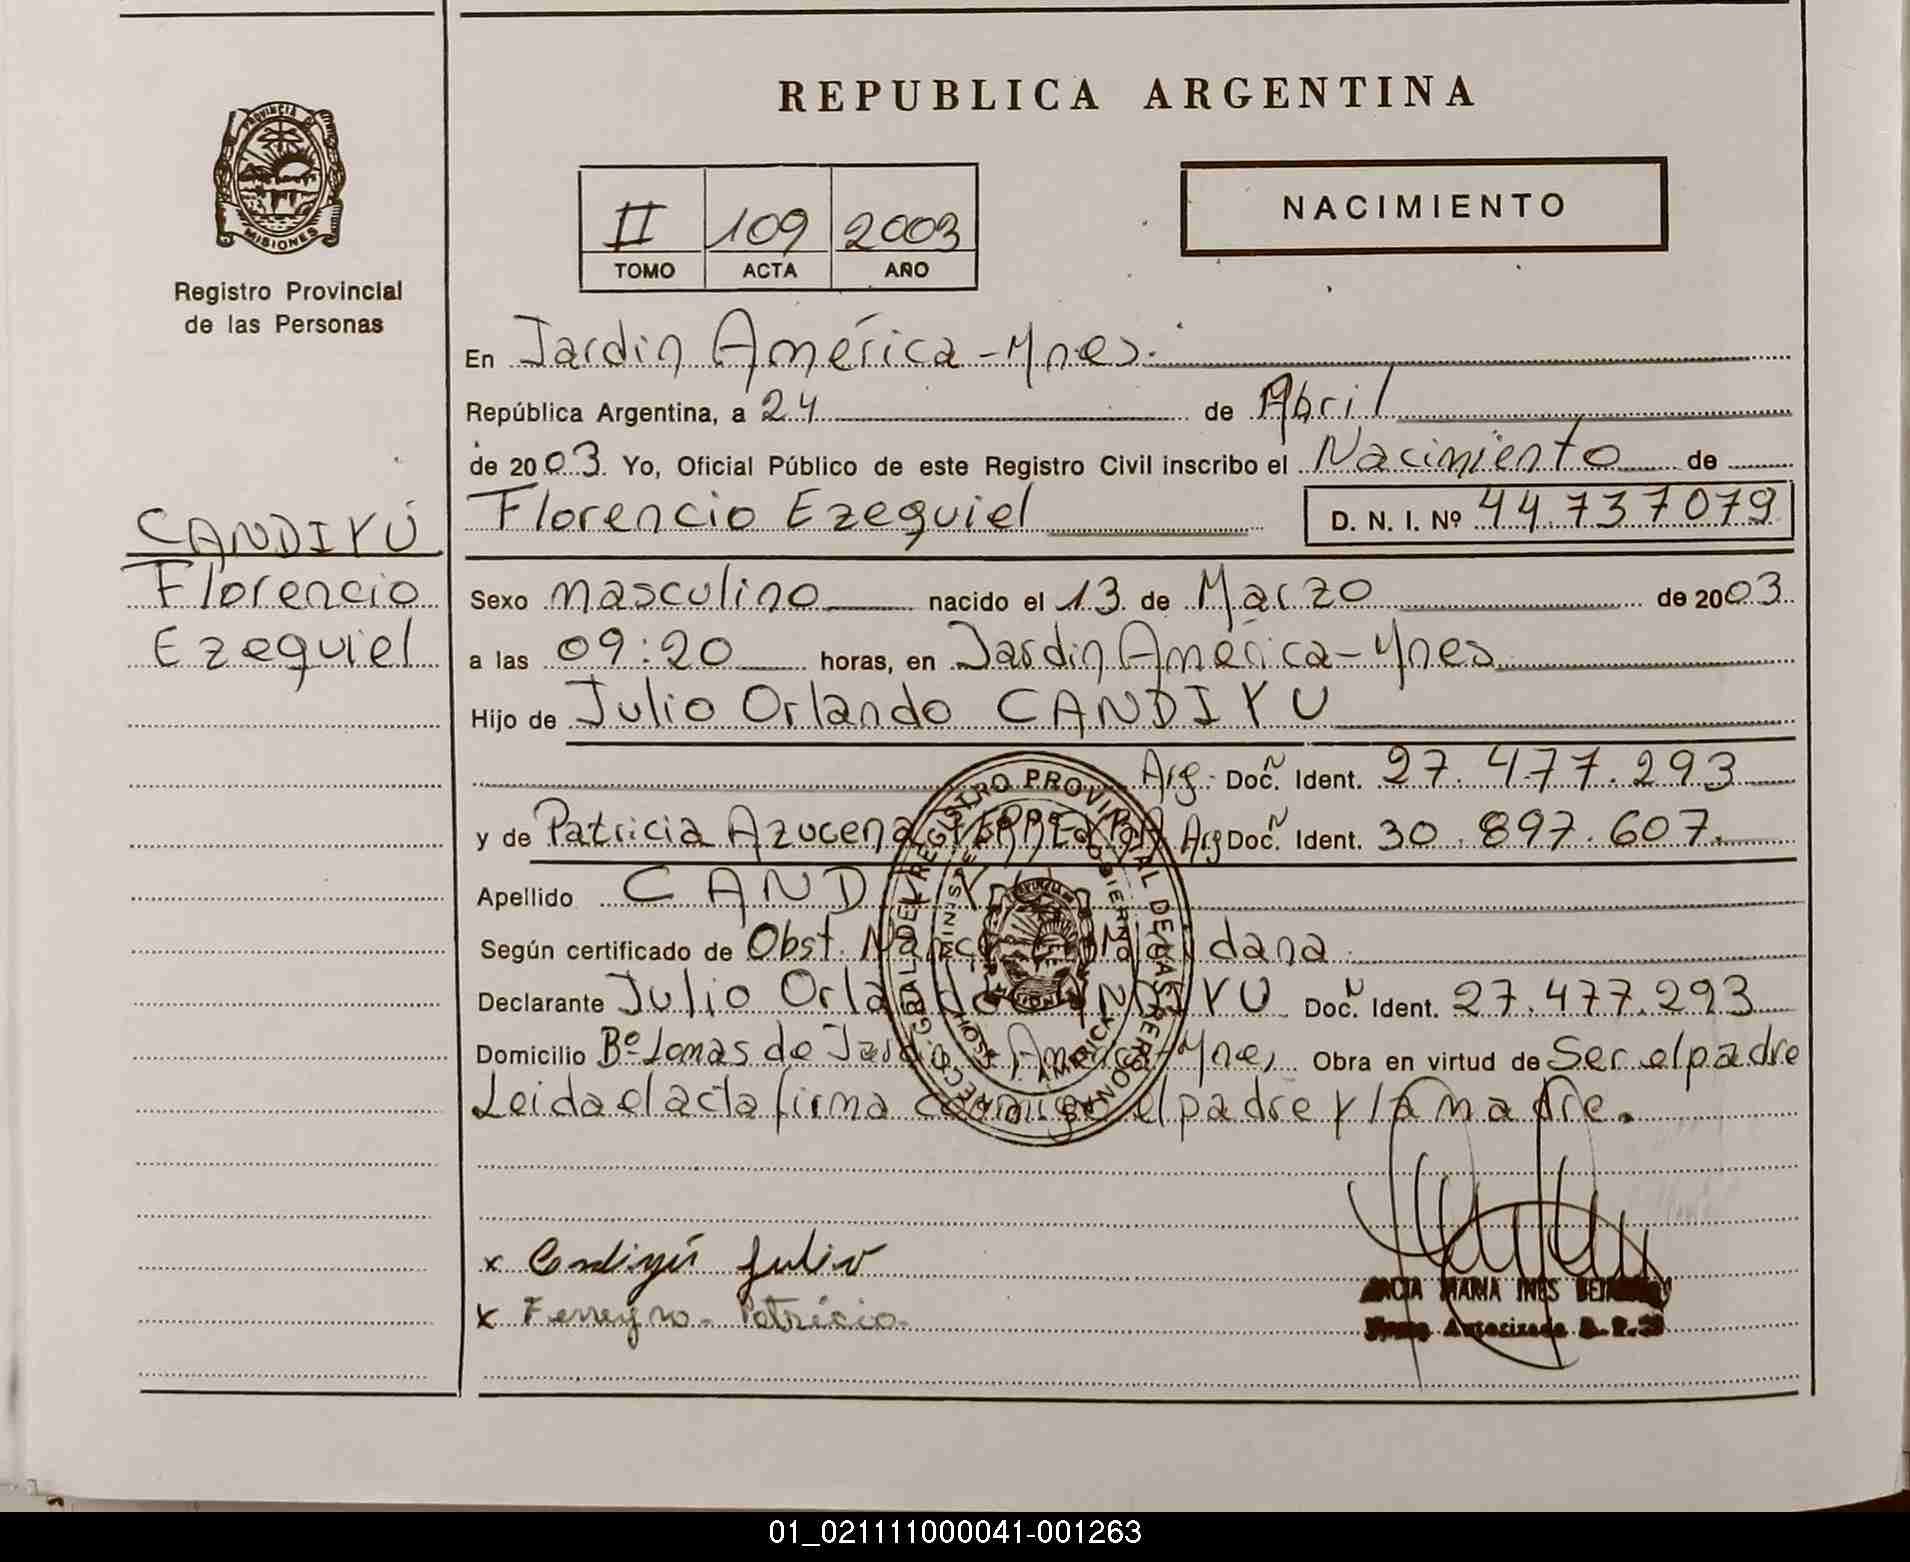 REPUBLICA ARGENTINA
PROVINCIA DE
MISIONES
Registro Provincial
de las Personas
II 109 2003
TOMO ACTA AÑO
NACIMIENTO
En Jardin América - Mnes.
República Argentina, a 24 de Abril
de 2003. Yo, Oficial Público de este Registro Civil inscribo el Nacimiento de
Florencio Ezequiel D. N. I. Nº 44.737079
CANDIYÚ
Florencio
Ezequiel
Sexo masculino nacido el 13 de Marzo de 2003.
a las 09:20 horas, en Jardin América - Mnes
Hijo de Julio Orlando CANDIYU
Arg. Doc. N Ident. 27.477.293
y de Patricia Azucena FERREYRA Arg Doc. N Ident. 30.897.607.
Apellido CANDIYU
Según certificado de Obst. dana.
Declarante Julio Orlando CANDIYU Doc. N Ident. 27.477.293
Domicilio Bº Lomas de Jardin América - Mnes, Obra en virtud de Ser el padre
Leida el acta firma conmigo el padre y la madre.
DIRECC. GRAL. DEL REGISTRO PROVINCIAL DE LAS PERSONAS
MINISTERIO DE GOBIERNO
AMERICA
x Candiyú Julio
x Ferreyra Patricia
MARIA INES
Autorizada
01_021111000041-001263